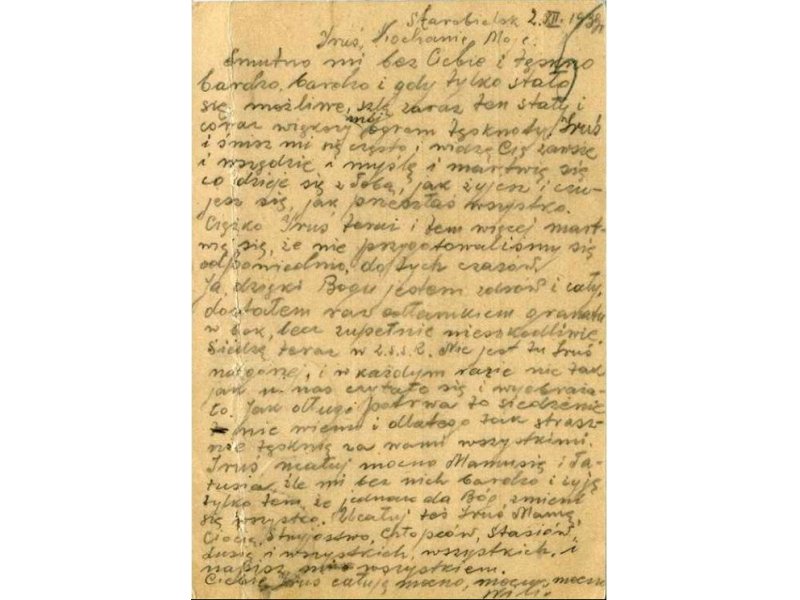 Starobielsk 2.XII.1939 r
Iruś, Kochanie Moje.
Smutno mi bez Ciebie i tęskno
bardzo, bardzo i gdy tylko stało
się możliwe, szlę zaraz ten stały i
coraz większy mój ogrom tęsknoty. Iruś
i śnisz mi się często i widzę Cię zawsze
i wszędzie i myślę i martwię się
co dzieje się z Tobą, jak żyjesz i czu-
jesz się, jak przeszłaś wszystko.
Ciężko Iruś teraz i tem więcej mart-
wię się, że nie przygotowaliśmy się
odpowiednio do tych czasów.
Ja, dzięki Bogu jestem zdrów i cały,
dostałem raz odłamkiem granatu
w bok, lecz zupełnie nieszkodliwie.
Siedzę teraz w Z.S.S.R. Nie jest tu Iruś
najgorzej, i w każdym razie nie tak
jak u nas czytało się i wyobraża-
ło. Jak długo potrwa to siedzenie
nie wiem i dlatego tak strasz-
nie tęsknię za wami wszystkimi.
Iruś, ucałuj mocno Mamusię i Ta-
tusia, źle mi bez nich bardzo i żyję
tylko tem, że jednak da Bóg zmieni
się wszystko. Ucałuj też Iruś Mamę,
Ciocię, Stryjostwo, Chłopców, Stasiów,
Lusię i wszystkich, wszystkich, i
napisz mi o wszystkiem.
Ciebie Iruś całuję mocno, mocno, mocno